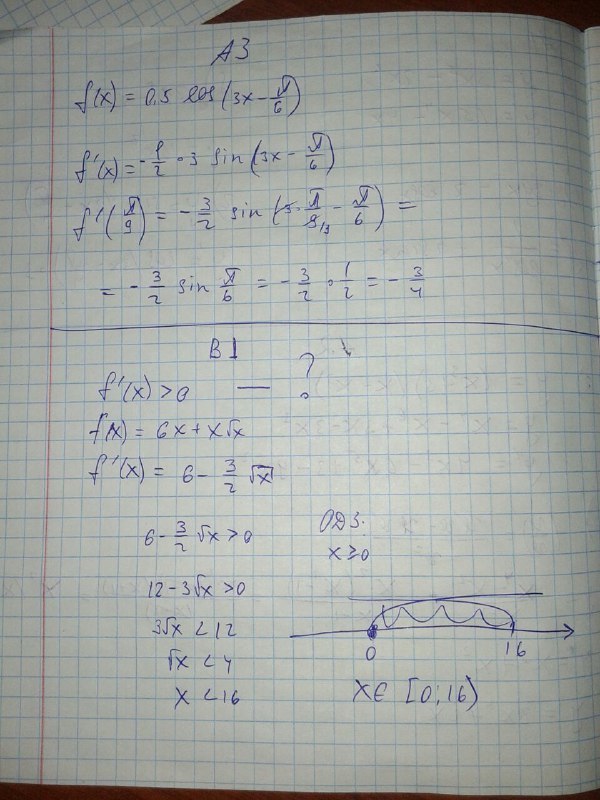 A3
f(x) = 0,5 cos(3x - π/6)
f'(x) = -1/2 · 3 sin(3x - π/6)
f'(π/9) = -3/2 sin(3 · π/9/3 - π/6) =
= -3/2 sin π/6 = -3/2 · 1/2 = -3/4
B1
f'(x) > 0 — ?
f(x) = 6x + x√x
f'(x) = 6 - 3/2 √x
6 - 3/2 √x > 0
12 - 3√x > 0
3√x < 12
√x < 4
x < 16
ОДЗ:
x ≥ 0
0 16
x ∈ [0; 16)